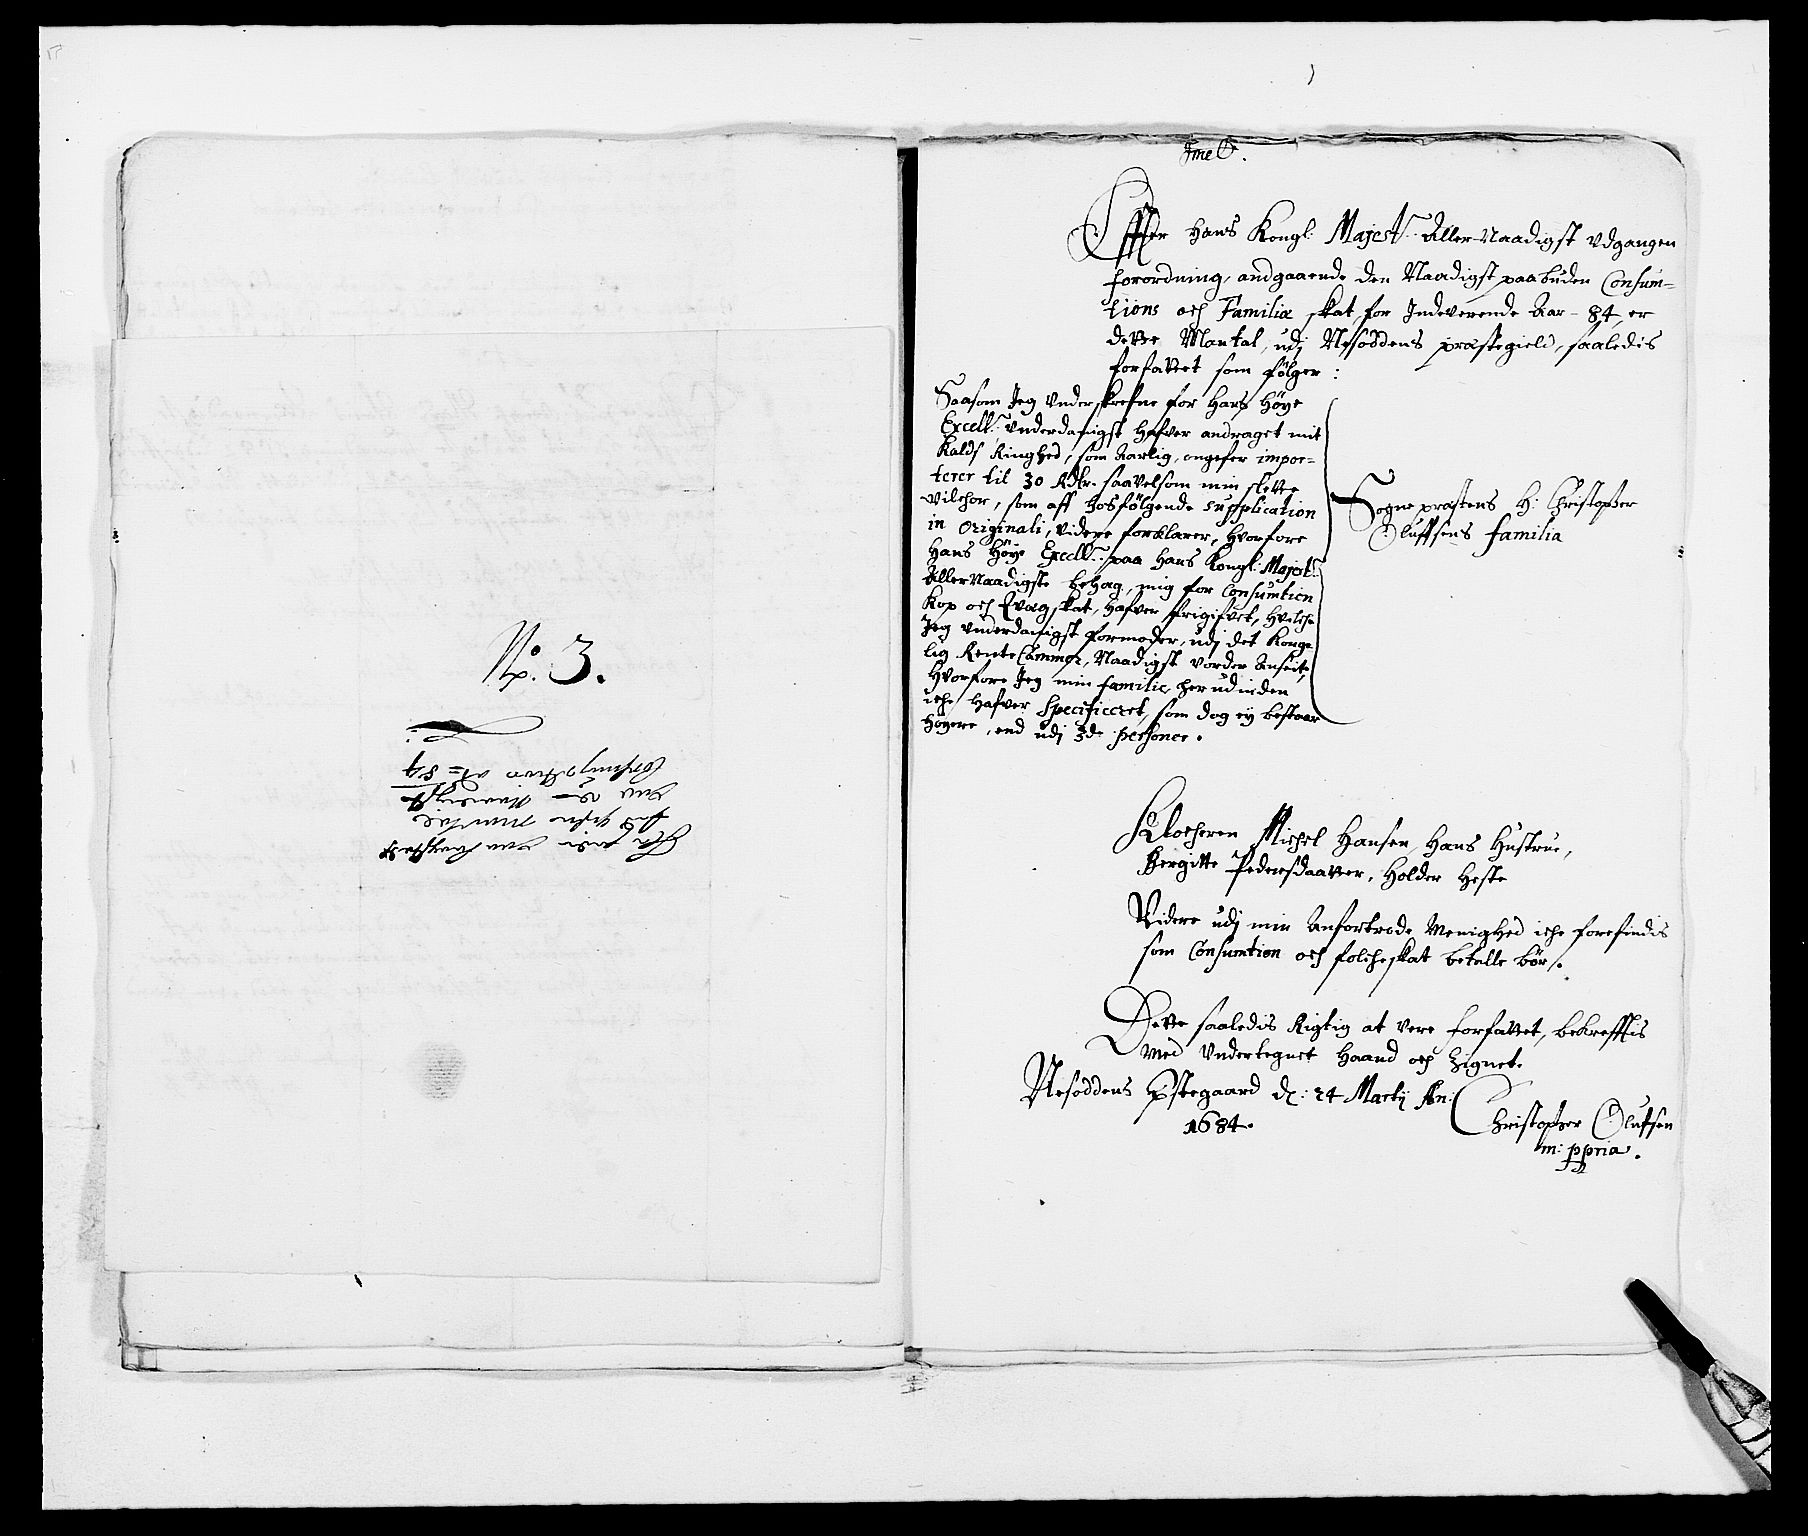 No. 3.
Effter Hans Kongl: Majest. Aller Naadigst udgangen
forordning, andgaaende den Naadigst paabuden Consum-
tions och Familiæ skat, for Indeverende Aar - 84, er
dette Mantal, udj Nesoddens præstegield, saaledis
forfattet som følger:
Saasom Jeg underskrefne for Hans Høye
Excell. underdanigst hafver andraget mit
Kalds Ringhed, som Aarlig, ongefer impor-
terer til 30 Rdlr. saavelsom min slette
vilchor, som aff hosfølgende supplication
in originali, videre forklarer, hvorfore
Hans Høye Excell. paa Hans Kongl. Majest.
AllerNaadigste behag, mig for Consumtion
Kop och Qvæg skat, hafver frigifvet, hvilche
Jeg underdanigst formoder, udj det Konge
lig Rente Cammer, Naadigst vorder Anseet,
hvorfore Jeg min familie, her udinden
iche hafver Specificeret, som dog ey bestaar
høyere, end udj 3de personer.
Sogne præstens H: Christopher
Oluffsens familia
Klocheren Michel Hansen, Hans Hustrue,
Bergitte Pedersdaatter, holder heste
Videre udj min Anfortrode Menighed iche forefindis
som Consumtion och folcheskat betalle bør.
Dette saaledis Rigtig at vere forfattet, bekrefftis
med undertegnet haand och Zignet.
Nesoddens Pstegaard d: 24 Martij An:
1684.
Christopher Olufsen
m: ppria.